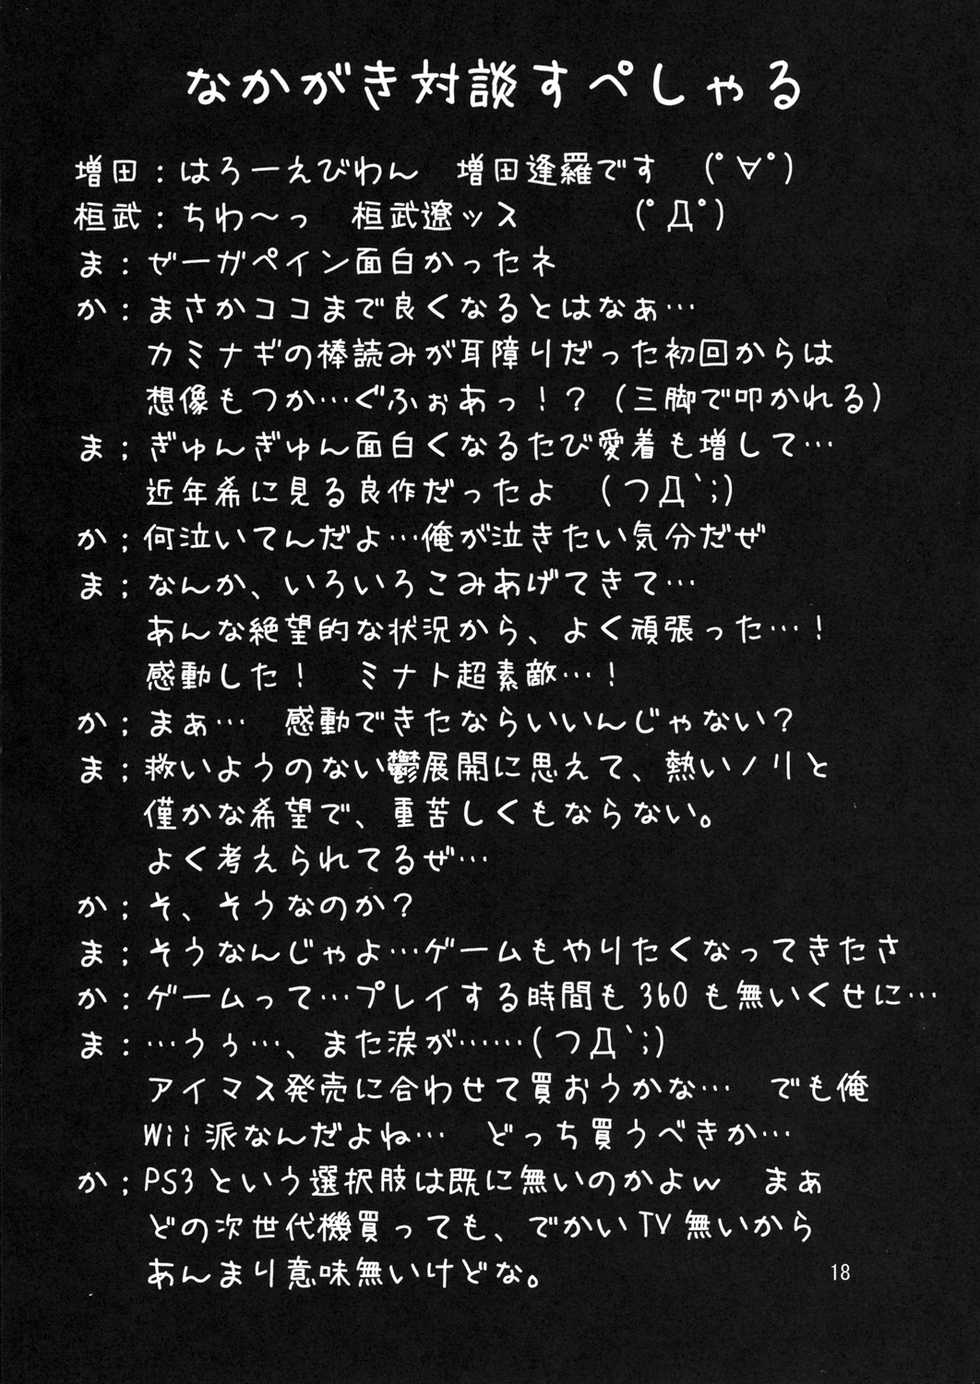 なかがき対談すぺしゃる
増田：はろーえびわん　増田逢羅です　（ﾟ∀ﾟ）
桓武：ちわ～っ　桓武遼ッス　（ﾟДﾟ）
ま：ぜーガペイン面白かったネ
か：まさかココまで良くなるとはなぁ…
カミナギの棒読みが耳障りだった初回からは
想像もつか…ぐふぉあっ！？（三脚で叩かれる）
ま；ぎゅんぎゅん面白くなるたび愛着も増して…
近年希に見る良作だったよ　（つД`；）
か；何泣いてんだよ…俺が泣きたい気分だぜ
ま；なんか、いろいろこみあげてきて…
あんな絶望的な状況から、よく頑張った…！
感動した！　ミナト超素敵…！
か；まぁ…　感動できたならいいんじゃない？
ま；救いようのない鬱展開に思えて、熱いノリと
僅かな希望で、重苦しくもならない。
よく考えられてるぜ…
か；そ、そうなのか？
ま；そうなんじゃよ…ゲームもやりたくなってきたさ
か：ゲームって…プレイする時間も360も無いくせに…
ま：…うぅ…、また涙が……（つД`；）
アイマス発売に合わせて買おうかな…　でも俺
Wii派なんだよね…　どっち買うべきか…
か；PS3という選択肢は既に無いのかよw　まぁ
どの次世代機買っても、でかいTV無いから
あんまり意味無いけどな。
18